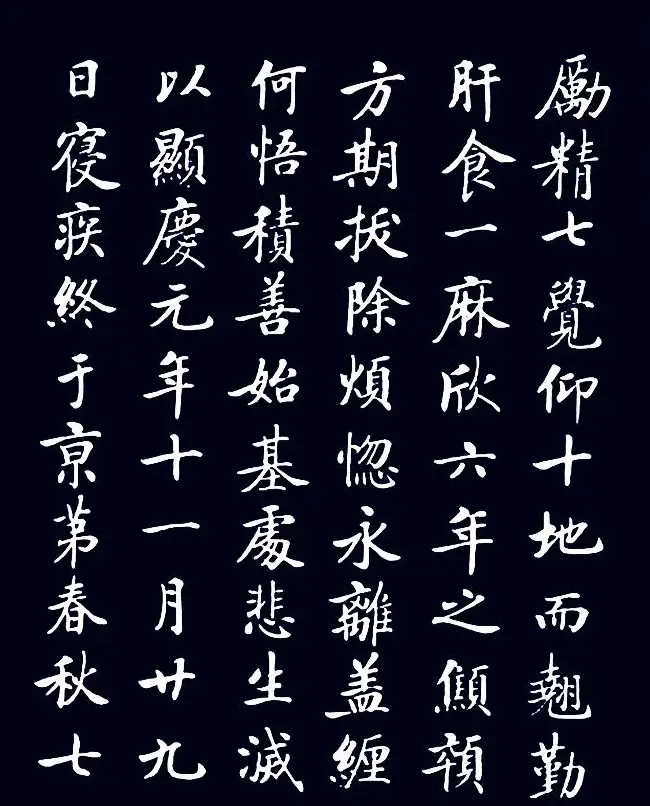 勵精七覺仰十地而翹勤
肝食一麻欣六年之顦顇
方期拔除煩惚永離盖纏
何悟積善始基處悲生滅
以顯慶元年十一月廿九
日寑疾終于亰苐春秋七